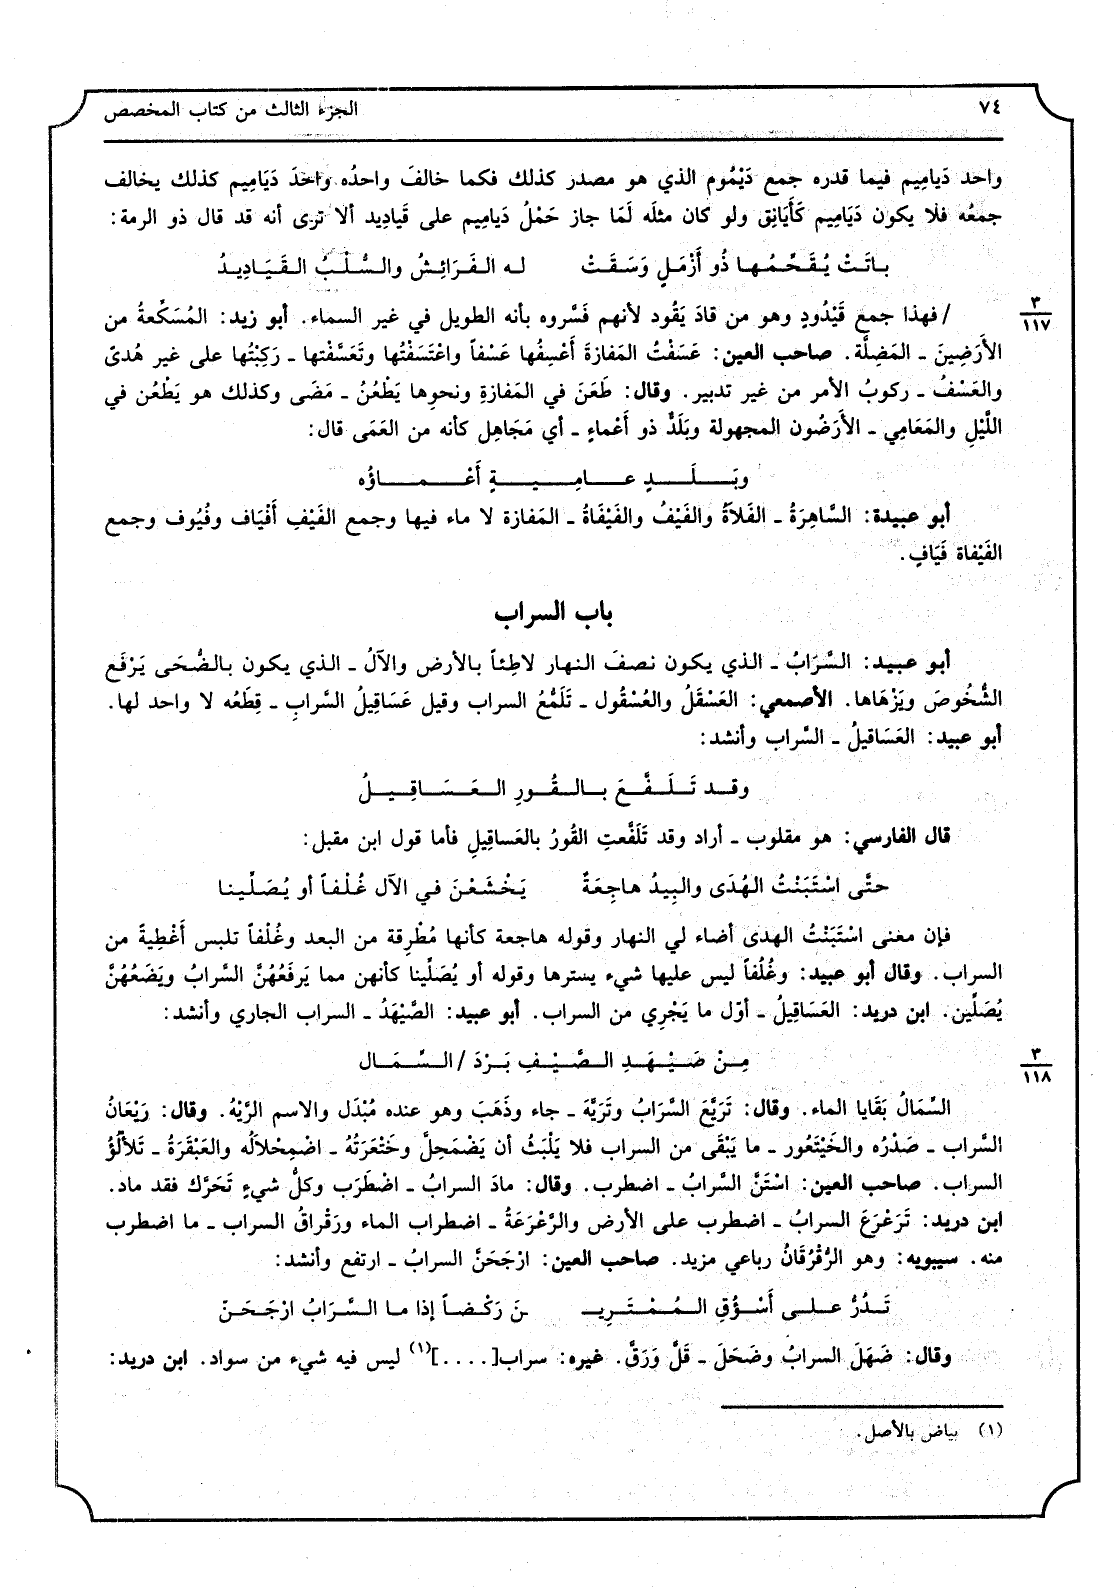 ٧٤
الجزء الثالث من كتاب المخصص
واحد دَيامِيم فيما قدره جمع دَيْمُوم الذي هو مصدر كذلك فكما خالفَ واحدُه واحدَ دَيَامِيم كذلك يخالف
جمعُه فلا يكون دَيَامِيم كَأَيَانِق ولو كان مثلَه لَمَا جاز حَمْلُ دَيامِيم على قَيادِيد ألا ترى أنه قد قال ذو الرمة:
بـاتَـتْ يُـقَـحِّـمُـهـا ذُو أَزْمَـلٍ وَسَـقَـتْ لـه الـفَـرَائِـشُ والـسُّـلْـبُ القَـيَـادِيـدُ
/ فهذا جمع قَيْدُودٍ وهو من قادَ يَقُود لأنهم فَسَّروه بأنه الطويل في غير السماء. أبو زيد: المُسَكِّعةُ من
٣
١١٧
الأَرَضِينَ ـ المَضِلَّة. صاحب العين: عَسَفْتُ المَفازةَ أَعْسِفُها عَسْفاً واعْتَسَفْتُها وتَعَسَّفْتها ـ رَكِبْتُها على غير هُدىً
والعَسْفُ ـ ركوبُ الأمر من غير تدبير. وقال: طَعَنَ في المَفازةِ ونحوِها يَطْعُنُ ـ مَضَى وكذلك هو يَطْعُن في
اللَّيْلِ والمَعَامِي ـ الأَرَضُون المجهولة وبَلَدٌ ذو أَعْماءٍ ـ أي مَجَاهِل كأنه من العَمَى قال:
وبَـــلَـــدٍ عـــامِـــيـــةٍ أَعْـــمـــاؤُه
أبو عبيدة: السَّاهِرَةُ ـ الفَلاَةُ والفَيْفُ والفَيْفَاةُ ـ المَفازة لا ماء فيها وجمع الفَيْفِ أَفْيَاف وفُيُوف وجمع
الفَيْفاة فَيَافٍ.
باب السراب
أبو عبيد: السَّرَابُ ـ الذي يكون نصفَ النهار لاطِئاً بالأرض والآلُ ـ الذي يكون بالضُّحَى يَرْفَع
الشُّخُوصَ ويَزْهَاها. الأصمعي: العَسْقَلُ والعُسْقُول ـ تَلَمُّعُ السراب وقيل عَسَاقِيلُ السَّرابِ ـ قِطَعُه لا واحد لها.
أبو عبيد: العَسَاقيلُ ـ السَّراب وأنشد:
وقـد تَـلَـفَّـعَ بـالـقُـورِ الـعَـسَـاقِـيـلُ
قال الفارسي: هو مقلوب ـ أراد وقد تَلَفَّعتِ القُورُ بالعَساقِيلِ فأما قول ابن مقبل:
حتَّى اسْتَبَنْتُ الهُدَى والبِيدُ هاجِعَةٌ يَخْشَعْنَ في الآل غُلْفاً أو يُصَلِّينا
فإن معنى اسْتَبَنْتُ الهدى أضاء لي النهار وقوله هاجعة كأنها مُطْرِقة من البعد وغُلْفاً تلبس أَغْطِيةً من
السراب. وقال أبو عبيد: وغُلْفاً ليس عليها شيء يسترها وقوله أو يُصَلِّينا كأنهن مما يَرفَعُهُنَّ السَّرابُ ويَضَعُهُنَّ
يُصَلِّين. ابن دريد: العَسَاقِيلُ ـ أوّل ما يَجْرِي من السراب. أبو عبيد: الصَّيْهَدُ ـ السراب الجاري وأنشد:
مِـنْ صَـيْـهَـدِ الـصَّـيْـفِ بَـرْدَ / السِّـمَـال
٣
١١٨
السِّمَالُ بَقَايا الماء. وقال: تَرَيَّعَ السَّرَابُ وتَرَيَّهَ ـ جاء وذَهَبَ وهو عنده مُبْدَل والاسم الرَّيْهُ. وقال: رَيْعَانُ
السَّراب ـ صَدْرُه والخَيْتَعُور ـ ما يَبْقَى من السراب فلا يَلْبَثُ أن يَضْمَحِلَّ وخَتْعَرَتُهُ ـ اضْمِحْلاَلُه والعَبْقَرَةُ ـ تَلأْلُؤُ
السراب. صاحب العين: اسْتَنَّ السَّرابُ ـ اضطرب. وقال: مادَ السرابُ ـ اضْطَرَب وكلُّ شيءٍ تَحَرَّك فقد ماد.
ابن دريد: تَرَعْرَعَ السرابُ ـ اضطرب على الأرض والرَّعْرَعَةُ ـ اضطراب الماء ورَقْراقُ السراب ـ ما اضطرب
منه. سيبويه: وهو الرُّقْرُقَانُ رباعي مزيد. صاحب العين: ارْجَحَنَّ السرابُ ـ ارتفع وأنشد:
تَـدُرُّ عـلـى أَسْـؤُقِ الـمُـمْـتَـرِيـ ـنَ رَكْـضـاً إذا ما السَّـرَابُ ارْجَـحَـنّ
وقال: ضَهَلَ السرابُ وضَحَلَ ـ قَلَّ وَرَقَّ. غيره: سراب[....](١) ليس فيه شيء من سواد. ابن دريد:
(١) بياض بالأصل.